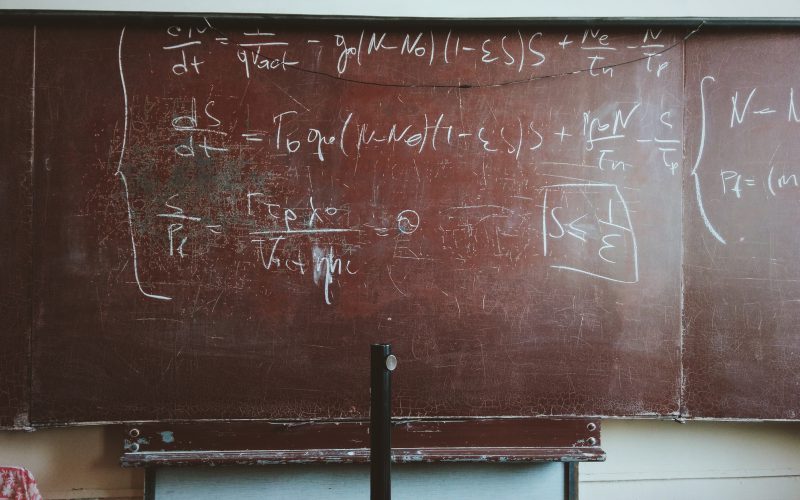 dN/dt = 1/qVact - g0(N-N0)(1-εS)S + Ne/τn - N/τp
dS/dt = Γ0 g0(N-N0)(1-εS)S + N/τn - S/τp
S/Pf = Γτpλ0/Vact ηhc = ϑ
S ≤ 1/ε
N - N
Pf = (m